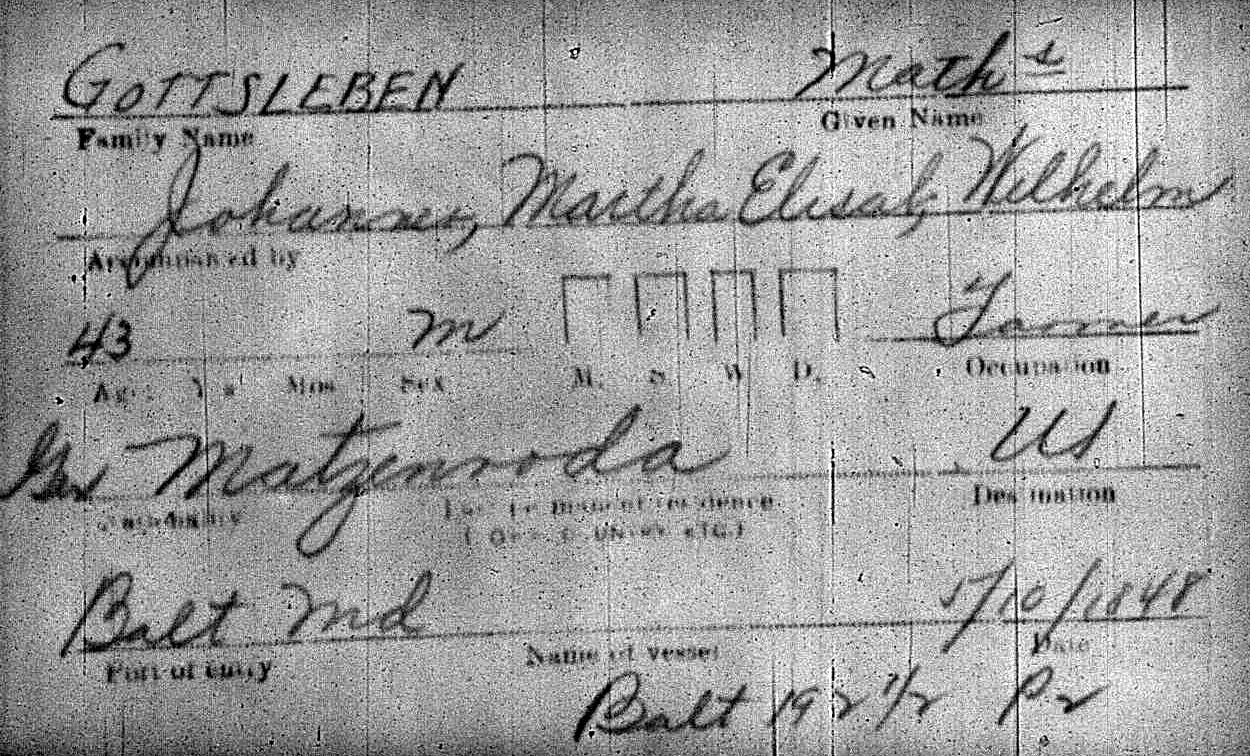 GOTTSLEBEN Math s
Family Name Given Name
Johannes, Martha Elisab, Wilhelm
Accompanied by
43 M Farmer
Age Yrs Mos Sex M. S. W. D. Occupation
Ger Matzenroda US
Last permanent residence Destination
Balt Md 5/10/1848
Port of entry Name of vessel Date
Balt 192 1/2 P2